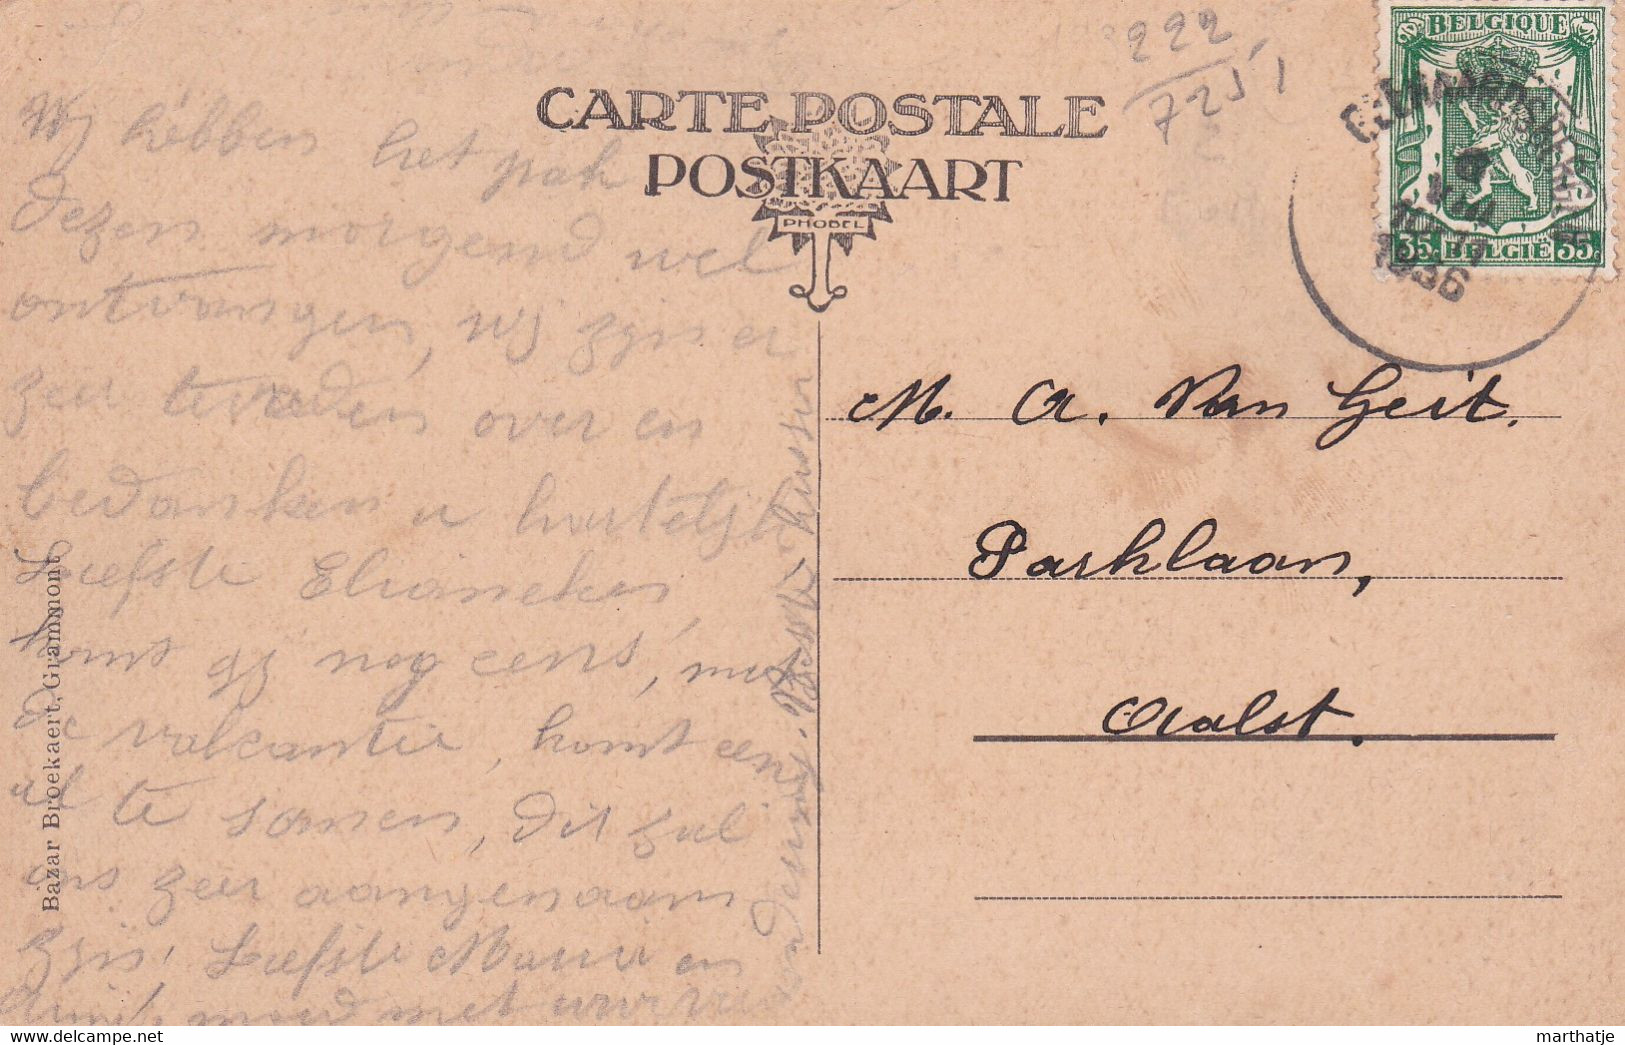 CARTE POSTALE
POSTKAART
PHOBEL
222
7251
BELGIQUE
35 BELGIE 35
1936
Wij hebben het pak
dezen morgend wel
ontvangen, wij zijn er
zeer tevreden over en
bedanken u hartelijk
Liefste Elianeken
komt gij nog eens, met
de vakantie, komt eens
al te samen, dit zal
ons zeer aangenaam
zijn, Liefste Marie en
moed met uw
kussen
M. A. Van Geit.
Parklaan,
Aalst.
Bazar Broekaert, Grammont
marthatje